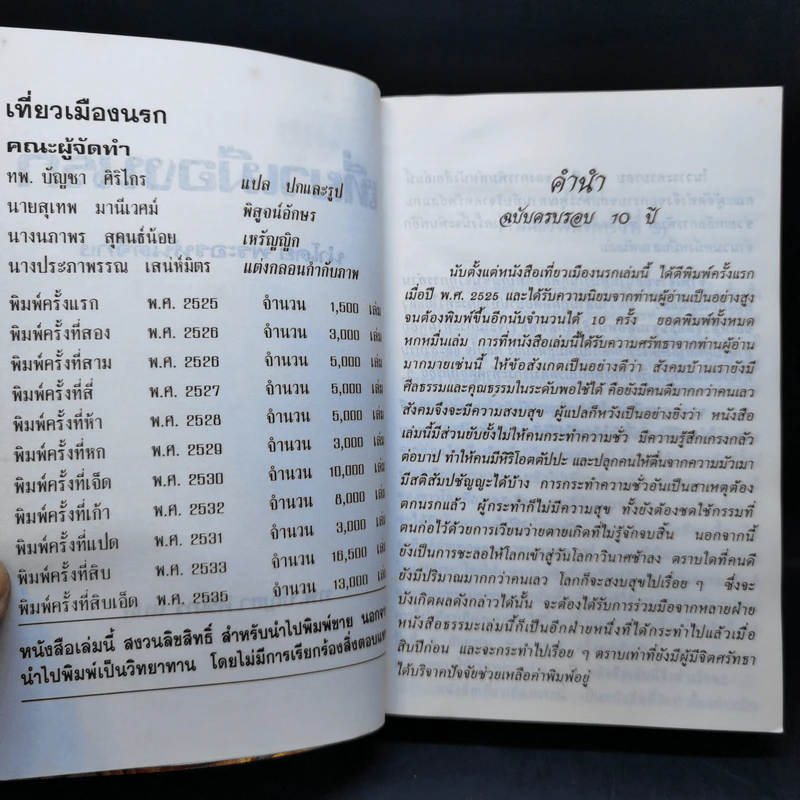 เที่ยวเมืองนรก
คณะผู้จัดทำ
ทพ. บัญชา ศิริไกร แปล ปกและรูป
นายสุเทพ มานีเวศม์ พิสูจน์อักษร
นางนภาพร สุคนธ์น้อย เหรัญญิก
นางประภาพรรณ เสน่ห์มิตร แต่งกลอนกำกับภาพ
พิมพ์ครั้งแรก พ.ศ. 2525 จำนวน 1,500 เล่ม
พิมพ์ครั้งที่สอง พ.ศ. 2526 จำนวน 3,000 เล่ม
พิมพ์ครั้งที่สาม พ.ศ. 2526 จำนวน 5,000 เล่ม
พิมพ์ครั้งที่สี่ พ.ศ. 2527 จำนวน 5,000 เล่ม
พิมพ์ครั้งที่ห้า พ.ศ. 2528 จำนวน 5,000 เล่ม
พิมพ์ครั้งที่หก พ.ศ. 2529 จำนวน 3,000 เล่ม
พิมพ์ครั้งที่เจ็ด พ.ศ. 2530 จำนวน 10,000 เล่ม
พิมพ์ครั้งที่เก้า พ.ศ. 2532 จำนวน 8,000 เล่ม
พิมพ์ครั้งที่แปด พ.ศ. 2531 จำนวน 3,000 เล่ม
พิมพ์ครั้งที่สิบ พ.ศ. 2533 จำนวน 16,500 เล่ม
พิมพ์ครั้งที่สิบเอ็ด พ.ศ. 2535 จำนวน 13,000 เล่ม
หนังสือเล่มนี้ สงวนลิขสิทธิ์ สำหรับนำไปพิมพ์ขาย นอกจาก
นำไปพิมพ์เป็นวิทยาทาน โดยไม่มีการเรียกร้องสิ่งตอบแทน
คำนำ
ฉบับครบรอบ 10 ปี
นับตั้งแต่หนังสือเที่ยวเมืองนรกเล่มนี้ ได้ตีพิมพ์ครั้งแรก
เมื่อปี พ.ศ. 2525 และได้รับความนิยมจากท่านผู้อ่านเป็นอย่างสูง
จนต้องพิมพ์ขึ้นอีกนับจำนวนได้ 10 ครั้ง ยอดพิมพ์ทั้งหมด
หกหมื่นเล่ม การที่หนังสือเล่มนี้ได้รับความศรัทธาจากท่านผู้อ่าน
มากมายเช่นนี้ ให้ข้อสังเกตเป็นอย่างดีว่า สังคมบ้านเรายังมี
ศีลธรรมและคุณธรรมในระดับพอใช้ได้ คือยังมีคนดีมากกว่าคนเลว
สังคมจึงจะมีความสงบสุข ผู้แปลก็หวังเป็นอย่างยิ่งว่า หนังสือ
เล่มนี้มีส่วนยับยั้งไม่ให้คนกระทำความชั่ว มีความรู้สึกเกรงกลัว
ต่อบาป ทำให้คนมีหิริโอตตัปปะ และปลุกคนให้ตื่นจากความมัวเมา
มีสติสัมปชัญญะได้บ้าง การกระทำความชั่วอันเป็นสาเหตุต้อง
ตกนรกแล้ว ผู้กระทำก็ไม่มีความสุข ทั้งยังต้องชดใช้กรรมที่
ตนก่อไว้ด้วยการเวียนว่ายตายเกิดที่ไม่รู้จักจบสิ้น นอกจากนี้
ยังเป็นการชะลอให้โลกเข้าสู่วันโลกาวินาศช้าลง ตราบใดที่คนดี
ยังมีปริมาณมากกว่าคนเลว โลกก็จะสงบสุขไปเรื่อย ๆ ซึ่งจะ
บังเกิดผลดังกล่าวได้นั้น จะต้องได้รับการร่วมมือจากหลายฝ่าย
หนังสือธรรมะเล่มนี้ก็เป็นอีกฝ่ายหนึ่งที่ได้กระทำไปแล้วเมื่อ
สิบปีก่อน และจะกระทำไปเรื่อย ๆ ตราบเท่าที่ยังมีผู้มีจิตศรัทธา
ได้บริจาคปัจจัยช่วยเหลือค่าพิมพ์อยู่